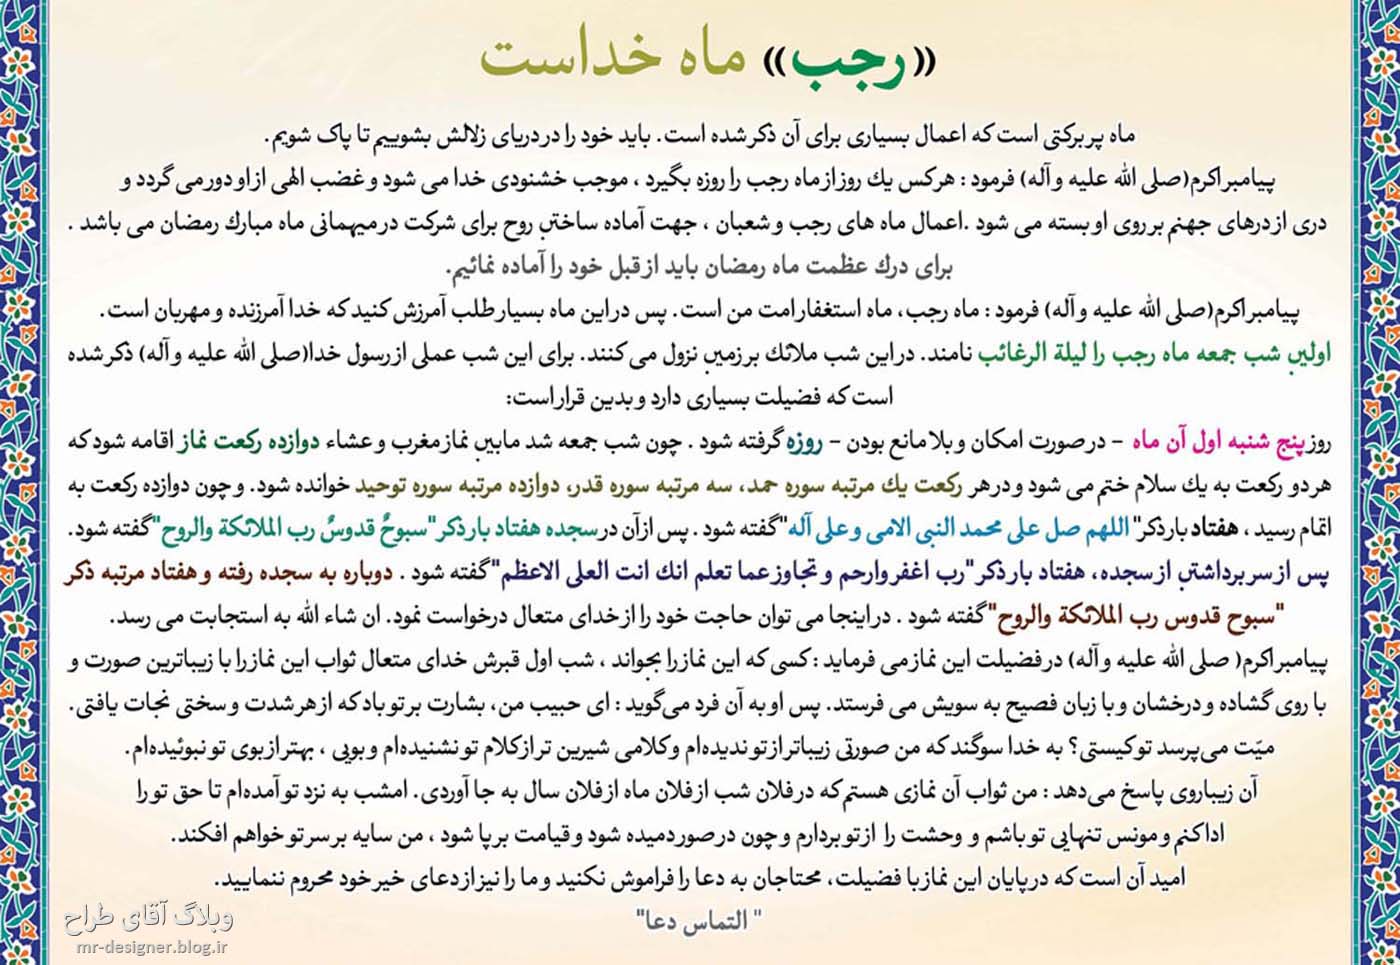 «رجب» ماه خداست
ماه پربرکتی است که اعمال بسیاری برای آن ذکر شده است. باید خود را در دریای زلالش بشوییم تا پاک شویم.
پیامبر اکرم(صلی الله علیه و آله) فرمود : هرکس یك روز از ماه رجب را روزه بگیرد ، موجب خشنودی خدا می شود و غضب الهی از او دور می گردد و
دری از درهای جهنم بر روی او بسته می شود .اعمال ماه های رجب و شعبان ، جهت آماده ساختن روح برای شرکت در میهمانی ماه مبارك رمضان می باشد .
برای درك عظمت ماه رمضان باید از قبل خود را آماده نمائیم.
پیامبر اکرم(صلی الله علیه و آله) فرمود : ماه رجب، ماه استغفار امت من است. پس در این ماه بسیار طلب آمرزش کنید که خدا آمرزنده و مهربان است.
اولین شب جمعه ماه رجب را لیلة الرغائب نامند. در این شب ملائك بر زمین نزول می کنند. برای این شب عملی از رسول خدا(صلی الله علیه و آله) ذکر شده
است که فضیلت بسیاری دارد و بدین قرار است:
روز پنج شنبه اول آن ماه - در صورت امکان و بلا مانع بودن - روزه گرفته شود . چون شب جمعه شد مابین نماز مغرب و عشاء دوازده رکعت نماز اقامه شود که
هر دو رکعت به یك سلام ختم می شود و در هر رکعت یك مرتبه سوره حمد، سه مرتبه سوره قدر، دوازده مرتبه سوره توحید خوانده شود. و چون دوازده رکعت به
اتمام رسید ، هفتاد بار ذکر" اللهم صل علی محمد النبی الامی و علی آله "گفته شود . پس از آن در سجده هفتاد بار ذکر"سبوحٌ قدوسٌ رب الملائکة والروح"گفته شود.
پس از سر برداشتن از سجده، هفتاد بار ذکر"رب اغفر وارحم و تجاوز عما تعلم انك انت العلی الاعظم"گفته شود . دوباره به سجده رفته و هفتاد مرتبه ذکر
"سبوح قدوس رب الملائکة والروح"گفته شود . در اینجا می توان حاجت خود را از خدای متعال درخواست نمود. ان شاء الله به استجابت می رسد.
پیامبر اکرم( صلی الله علیه و آله) در فضیلت این نماز می فرماید : کسی که این نماز را بخواند ، شب اول قبرش خدای متعال ثواب این نماز را با زیباترین صورت و
با روی گشاده و درخشان و با زبان فصیح به سویش می فرستد. پس او به آن فرد می‌گوید : ای حبیب من، بشارت بر تو باد که از هر شدت و سختی نجات یافتی.
میّت می‌پرسد تو کیستی؟ به خدا سوگند که من صورتی زیباتر از تو ندیده‌ام و کلامی شیرین تر از کلام تو نشنیده‌ام و بویی ، بهتر از بوی تو نبوئیده‌ام.
آن زیباروی پاسخ می‌دهد : من ثواب آن نمازی هستم که در فلان شب از فلان ماه از فلان سال به جا آوردی. امشب به نزد تو آمده‌ام تا حق تو را
ادا کنم و مونس تنهایی تو باشم و وحشت را از تو بردارم و چون در صور دمیده شود و قیامت بر پا شود ، من سایه بر سر تو خواهم افکند.
امید آن است که در پایان این نماز با فضیلت، محتاجان به دعا را فراموش نکنید و ما را نیز از دعای خیر خود محروم ننمایید.
" التماس دعا"
وبلاگ آقای طراح
mr-designer.blog.ir